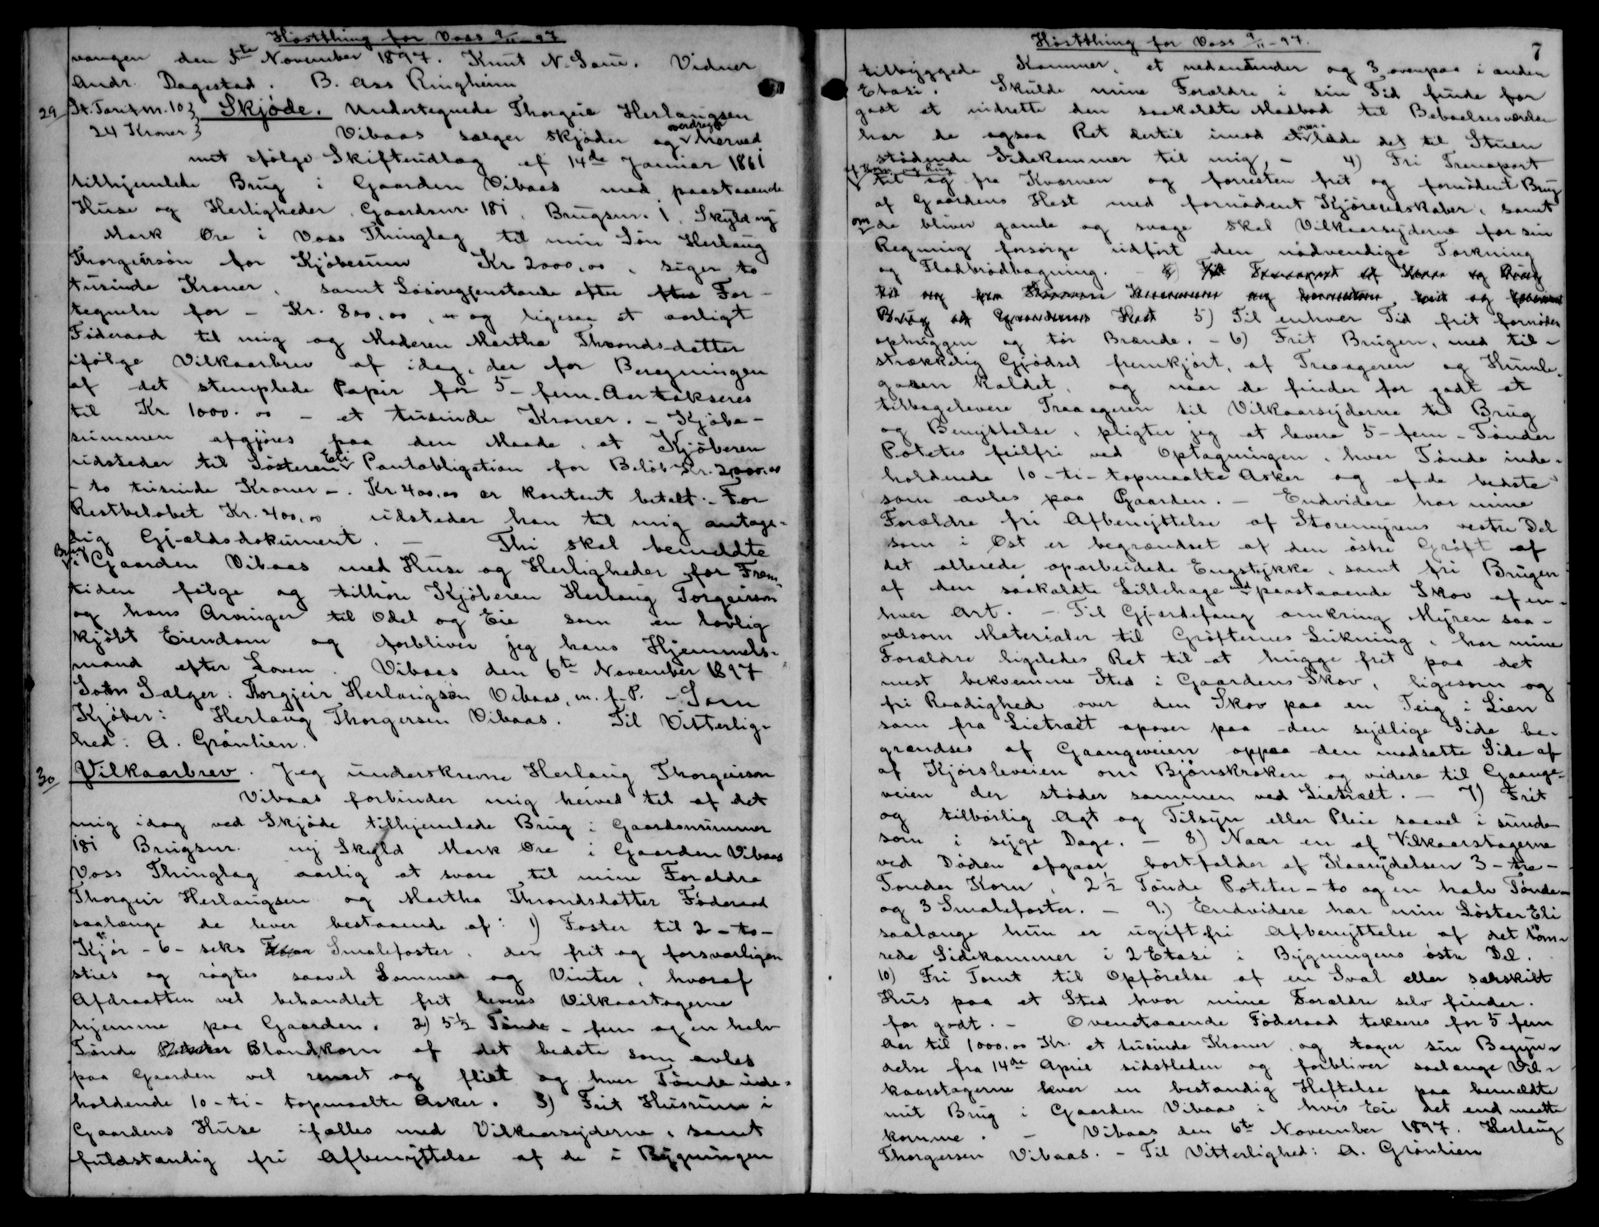 Høstthing for Voss 9/11-97
vangen den 5te November 1897. Knut N. Saue. Vidner
Andr. Dagestad. B. Ass Ringheim
29 St. Tarif nr. 10 Skjøde. Undertegnede Thorgeir Herlaugsen
24 Kroner Vibaas sælger skjøder og overdrager herved
mit ifølge Skifteudlæg af 14de Januar 1861
tilhjemlede Brug i Gaarden Vibaas med paastaaende
Huse og Herligheder, Gaardsnr 181, Brugsnr. 1, Skyld ny
Mark Øre i Voss Thinglag til min Søn Herlaug
Thorgeirsøn for Kjøbesum Kr. 2000,00, siger to
tusinde Kroner, samt Løsøregjenstande efter For-
tegnelse for - Kr. 800,00, og ligesaa et aarligt
Føderaad til mig og Moderen Martha Throndsdatter
ifølge Vilkaarbrev af idag, der for Beregningen
af det stemplede Papir for 5-fem-Aar takseres
til Kr 1000.00 - et tusinde Kroner. - Kjøbe-
summen afgjøres paa den Maade, at Kjøberen
udsteder til Søsteren Eli Pantobligation for Beløb Kr. 2000.00
- to tusinde Kroner -. Kr. 400.00 er kontent betalt. - For
Restbeløbet Kr. 400,00 udsteder han til mig antage-
lig Gjældsdokument. - Thi skal bemeldte
Brug i Gaarden Vibaas med Huse og Herligheder for Frem-
tiden følge og tilhøre Kjøberen Herlaug Torgeirson
og hans Arvinger til Odel og Eie som en lovlig
kjøbt Eiendom og forbliver jeg hans Hjemmels-
mand efter Loven. Vibaas den 6te November 1897
Som Sælger: Thorgjeir Herlaugsøn Vibaas, m. f. P. - Som
Kjøber: Herlaug Thorgersen Vibaas. Til Vitterlig-
hed: A. Grønlien.
30 Vilkaarbrev. Jeg underskrevne Herlaug Thorgeirson
Vibaas forbinder mig herved til af det
mig idag ved Skjøde tilhjemlede Brug i Gaardsnummer
181 Brugsnr. ny Skyld Mark Øre i Gaarden Vibaas
Voss Thinglag aarlig at svare til mine Forældre
Thorgeir Herlaugsen og Martha Throndsdatter Føderaad
saalænge de lever bestaaende af: 1) Foster til 2-to-
Kjør - 6 - seks Smalefoster, der frit og forsvarligen
sties og røgtes saavel Sommer og Vinter, hvoraf
Afdraatten vel behandlet frit leveres Vilkaartagerne
hjemme paa Gaarden. 2) 5½ Tønde - fem og en halv
Tønde Blandkorn af det bedste som avles
paa Gaarden vel renset og fliet og hver Tønde inde-
holdende 10-ti- topmaalte Asker. 3) Frit Husrum i
Gaardens Huse ifælles med Vilkaarsyderne, samt
fuldstændig fri Afbenyttelse af de i Bygningen
Høstthing for Voss 9/11-97.
7
tilbyggede Kammer, et nedenunder og 3 ovenpaa i anden
Etasi. Skulde mine Forældre i sin Tid finde for
godt at indrette den saakaldte Madbod til Beboelsesværelse
har de ogsaa Ret dertil imod at over lade det til Stuen
stødende Sidekammer til mig, - 4) Fri Transport
af Korn og Brug til og fra Kværnen og forresten frit og fornødent Brug
af Gaardens Hest med fornødent Kjøreredskaber, samt
om de bliver gamle og svage skal Vilkaarsyderne for sin
Regning forsørge udført den nødvendige Tørkning
og Fladbrødbagning. - 5) Frit Transport af Korn og Brug
til og fra Kværnen og forresten frit og fornødent
Brug af Gaardens Hest 5) Til enhver Tid frit fornøden
ophuggen og tør Brænde. - 6) Frit Brugen, med til-
strækkelig Gjødsel fremkjørt, af Traaageren og Humle-
gaaen kaldet, og naar de finder for godt at
tilbagelevere Traaageren til Vilkaarsyderne til Brug
og Benyttelse, pligter jeg at levere 5-fem-Tønder
Potetes feilfri ved Optagningen, hver Tønde inde-
holdende 10-ti-topmaalte Asker og af de bedste
som avles paa Gaarden. - Endvidere har mine
Forældre fri Afbenyttelse af Storemyrens vestre Del
som i Øst er begrændset af den østre Grøft af
det allerede oparbeidede Engstykke, samt fri Brugen
af den saakaldte Lillehage paastaaende Skov af en-
hver Art. - Til Gjærdefang omkring Myren saa-
velsom Materialer til Grøfternes Lukning, har mine
Forældre ligeledes Ret til at hugge frit paa det
mest bekvemme Sted i Gaardens Skov, ligesom og
fri Raadighed over den Skov paa en Teig i Lien
som fra Lietrædt opover paa den sydlige Side be-
grændses af Gaangeveien oppaa den modsatte Side af
af Kjørsleveien om Bjønskroken og videre til Gaange-
veien der støder sammen ved Lietrædt. - 7) Frit
og tilbørlig Agt og Tilsyn eller Pleie saavel i sunde
som i syge Dage. - 8) Naar en af Vilkaarstagerne
ved Døden afgaar, bortfalder af Kaarydelsen 3-tre-
Tønder Korn, 2½ Tønde Poteter - to og en halv Tønde -
og 3 Smalefoster. - 9.) Endvidere har min Søster Eli
saalænge hun er ugift fri Afbenyttelse af det tøm-
rede Sidekammer i 2 Etasi i Bygningens østre Del.
10) Fri Tomt til Opførelse af en Sval eller særskilt
Hus paa et Sted hvor mine Forældre selv finder
for godt. - Ovenstaaende Føderaad takseres for 5 fem
Aar til 1000.00 Kr. et tusinde Kroner, og tager sin Begyn-
delse fra 14de April sidstleden og forbliver saalænge Vil-
kaarstagerne lever en bestandig Heftelse paa bemeldte
mit Brug i Gaarden Vibaas i hvis Eie det end maatte
komme. - Vibaas den 6te November 1897. Herlaug
Thorgersen Vibaas. - Til Vitterlighed: A. Grønlien